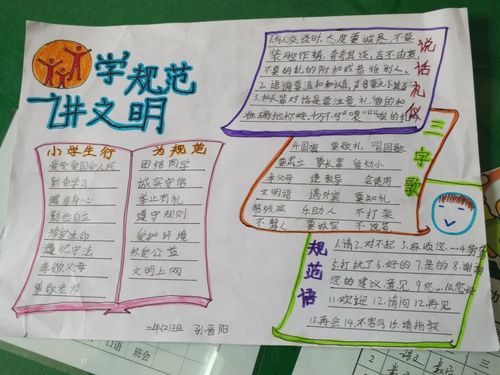 学规范
讲文明
小学生行为规范
爱党爱国爱人民
勤奋学习
健身身心
勤俭自立
珍爱生命
遵纪守法
孝敬父母
尊敬老师
团结同学
诚实守信
举止有礼
遵守规则
爱护环境
热爱公益
文明上网
二年(2)班 孙晋阳
说话礼仪
1.与人交谈时,态度要诚恳,不要
装腔作势,夸夸其谈,言不由衷,
不要胡乱的附和或恭维别人。
2.语调要温和
3.和长辈对话是要注意礼貌
三字歌
升国旗 要敬礼 唱国歌
要肃立 要长辈 爱幼小
亲父母 遵教导 会使用
文明语 遇外宾 要知礼
帮残疾 乐助人 不打架
不骂人 要诚实 不说谎
规范语
1.请 2.对不起 3.麻烦您… 4.劳驾
5.打扰了 6.好的 7.是的 8.谢谢
您的建议意见 9.您…10.您好
11.欢迎 12.请问 12.再见
13.再会 14.不客气 15.请指教
口语
班会
语文
数学